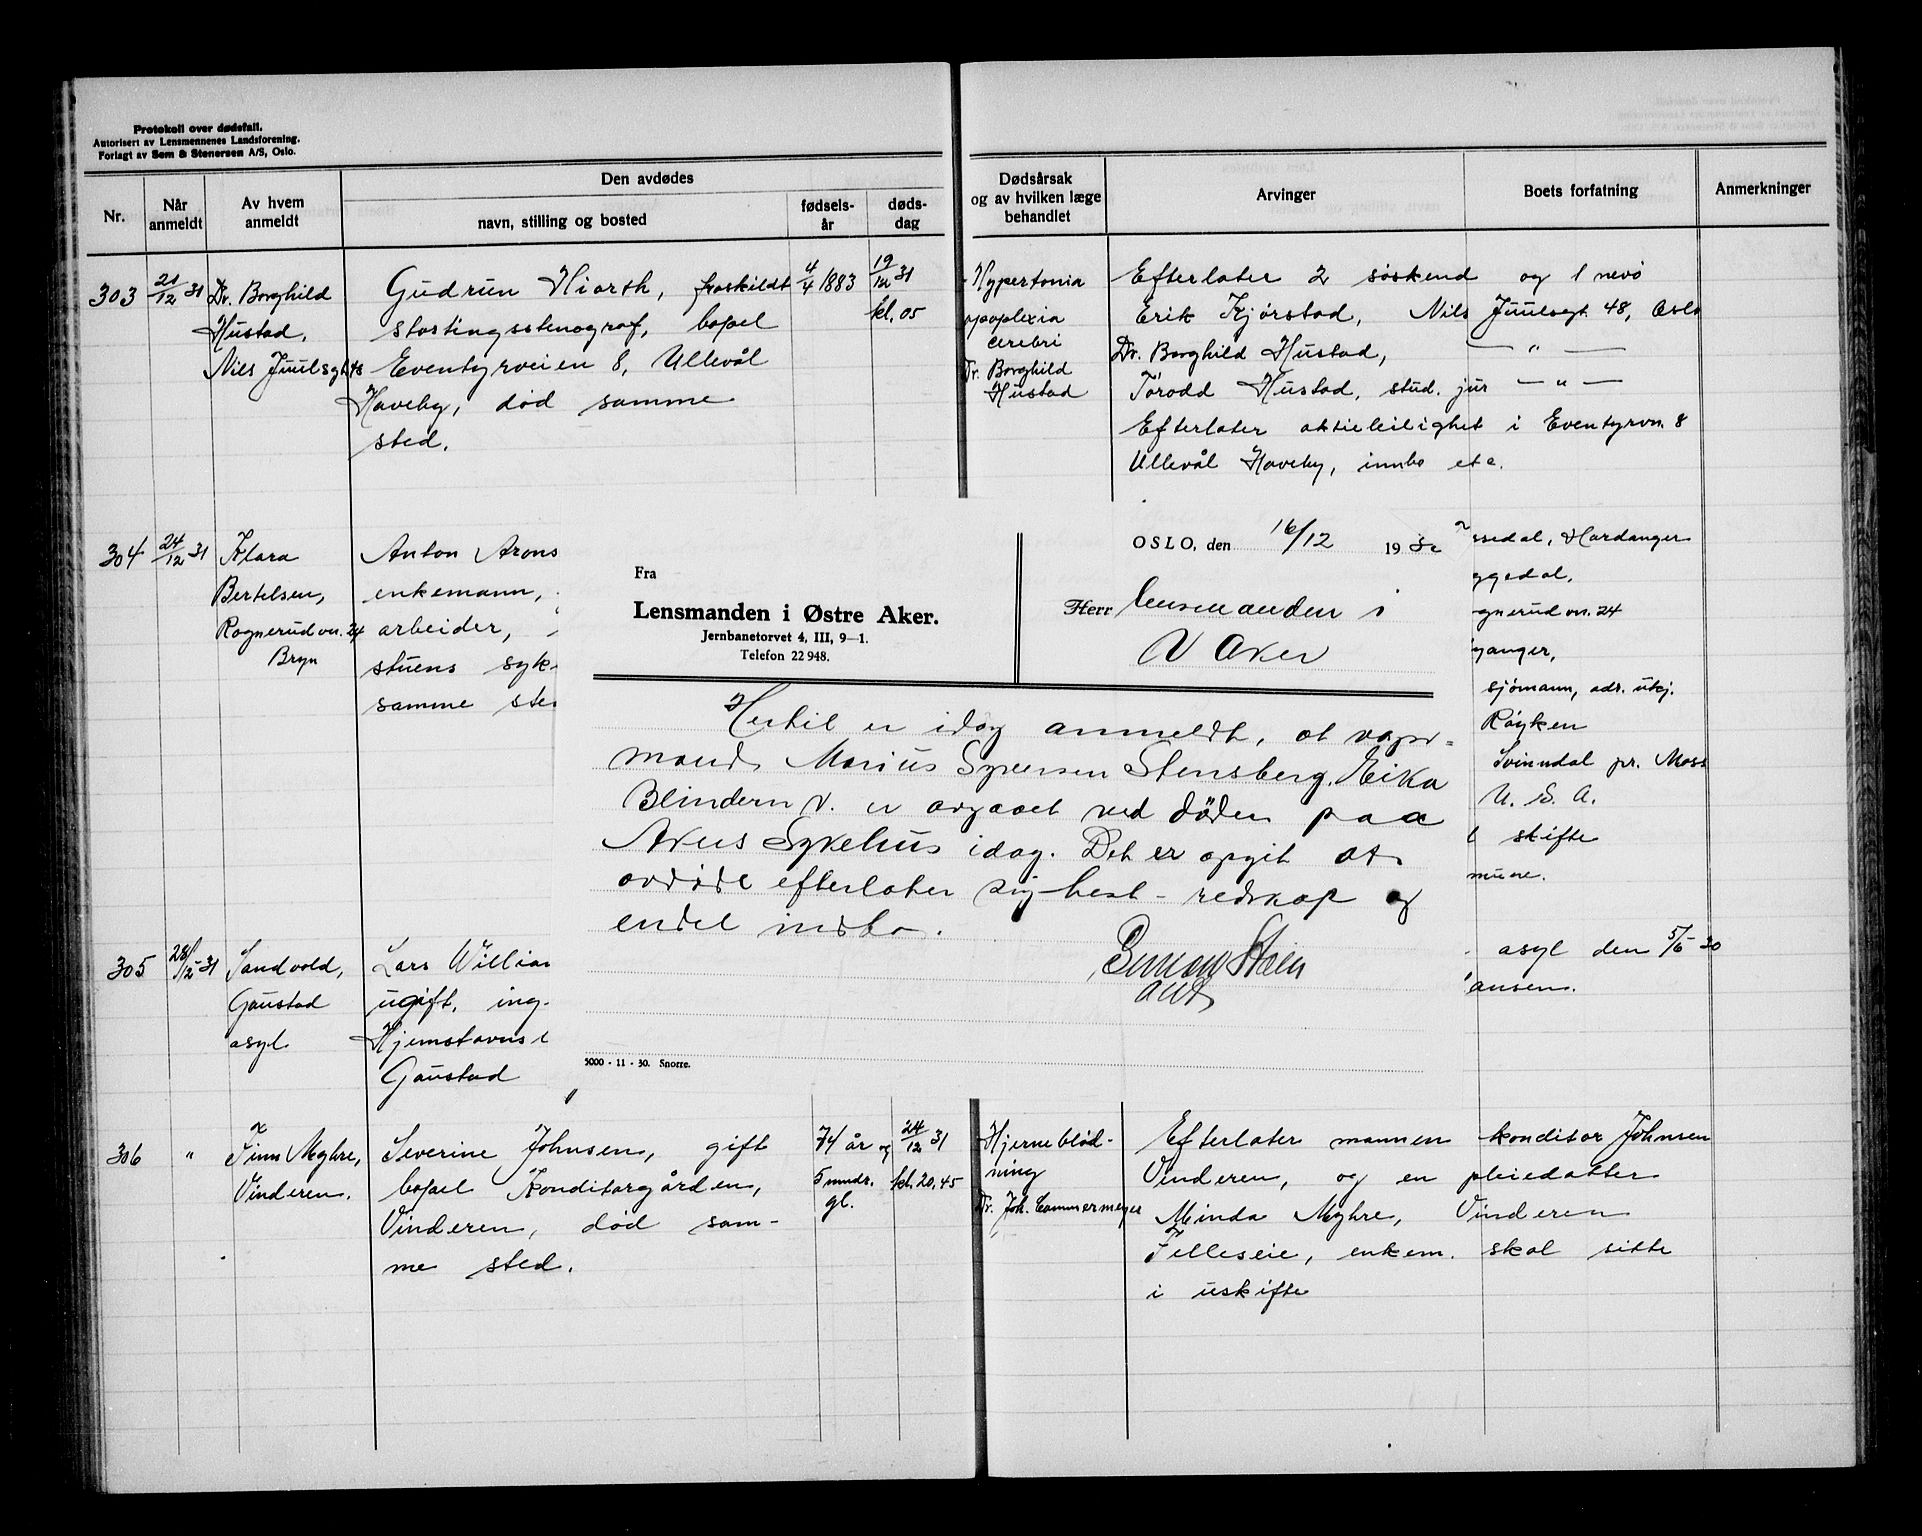 Protokoll over dødsfall.
Autorisert av Lensmennenes Landsforening.
Forlagt av Sem & Stenersen A/S, Oslo.
Nr.
Når anmeldt
Av hvem anmeldt
Den avdødes
navn, stilling og bosted
fødsels-år
døds-dag
Dødsårsak og av hvilken læge behandlet
Arvinger
Boets forfatning
Anmerkninger
303
21/12 31
Dr. Borghild
Hustad,
Nils Juulsgt. 48
Gudrun Hiorth, fraskildt
stortingsstenograf, bopel
Eventyrveien 8, Ullevål
Haveby, død samme
sted.
4/4 1883
19/12 31
kl. 05
Hypertonia
apoplexia
cerebri
Dr. Borghild
Hustad
Efterlater 2 søskend og 1 nevø
Erik Kjørstad, Nils Juulsgt. 48, Oslo
Dr. Borghild Hustad, — " —
Torodd Hustad, stud. jur — " —
Efterlater aktieleilighet i Eventyrvn. 8
Ullevål Haveby, innbo etc.
304
24/12 31
Klara
Bertelsen,
Rognerudvn. 24
Bryn
Anton Arons
enkemann,
arbeider,
stuens syk-
samme ste
ssedal, Hardanger
ggedal,
gnerudvn. 24
yanger,
sjømann, adr. utkj.
Røyken
Svinndal pr. Moss
U. S. A.
t skifte
mune.
Fra
Lensmanden i Østre Aker.
Jernbanetorvet 4, III, 9—1.
Telefon 22 948.
OSLO, den 16/12 19
Herr lensmanden i
V Aker
Hertil er idag anmeldt, at vogn-
mand Marius Syversen Stensberg, Eika
Blindern v. er avgaaet ved døden paa
Akers Sykehus idag. Det er opgit at
avdøde efterlater sig hest - redskap og
endel indbo.
5000 - 11 - 30. Snorre.
305
28/12 31
Sandvold,
Gaustad
asyl.
Lars William
ugift, ing.
Hjemstavns
Gaustad
asyl den 5/6 - 30
ansen.
306
"
Finn Myhre,
Vinderen.
Severine Johnsen, gift
bopel Konditorgården,
Vinderen, død sam-
me sted.
74 år og
5 mndr.
gl.
24/12 31
kl. 20,45
Hjerneblød-
ning
Dr. Joh. Cammermeyer
Efterlater mannen konditor Johnsen
Vinderen, og en pleiedatter
Minda Myhre, Vinderen
Felleseie, enkem. skal sitte
i uskifte